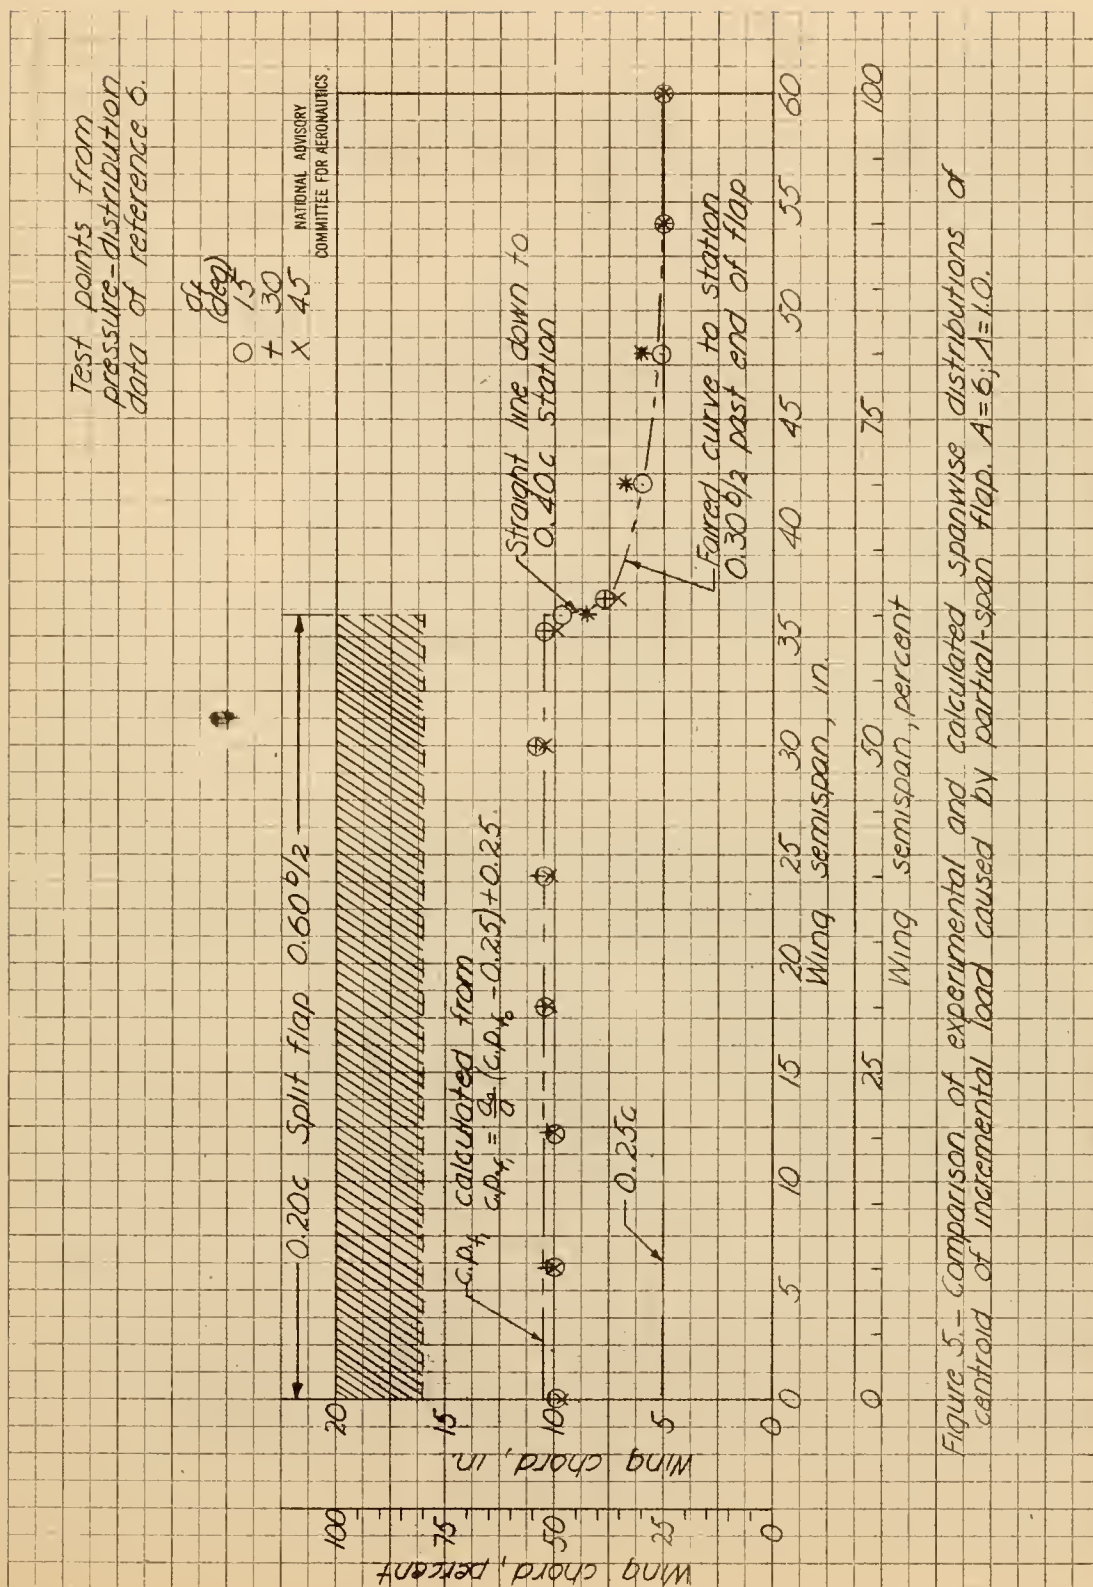 Test points from
pressure-distribution
data of reference 6.
δf
(deg)
O 15
+ 30
X 45
NATIONAL ADVISORY
COMMITTEE FOR AERONAUTICS.
0.20c Split flap 0.60 b/2
c.p.f₁ calculated from
c.p.f₁ = a₀/a (c.p.f₀ - 0.25) + 0.25.
Straight line down to
0.40c station
Faired curve to station
0.30 b/2 past end of flap
0.25c
Wing chord, percent
100
75
50
25
0
Wing chord, in.
20
15
10
5
0
0 5 10 15 20 25 30 35 40 45 50 55 60
Wing semispan, in.
0 25 50 75 100
Wing semispan, percent
Figure 5.- Comparison of experimental and calculated spanwise distributions of
centroid of incremental load caused by partial-span flap. A=6; λ=1.0.